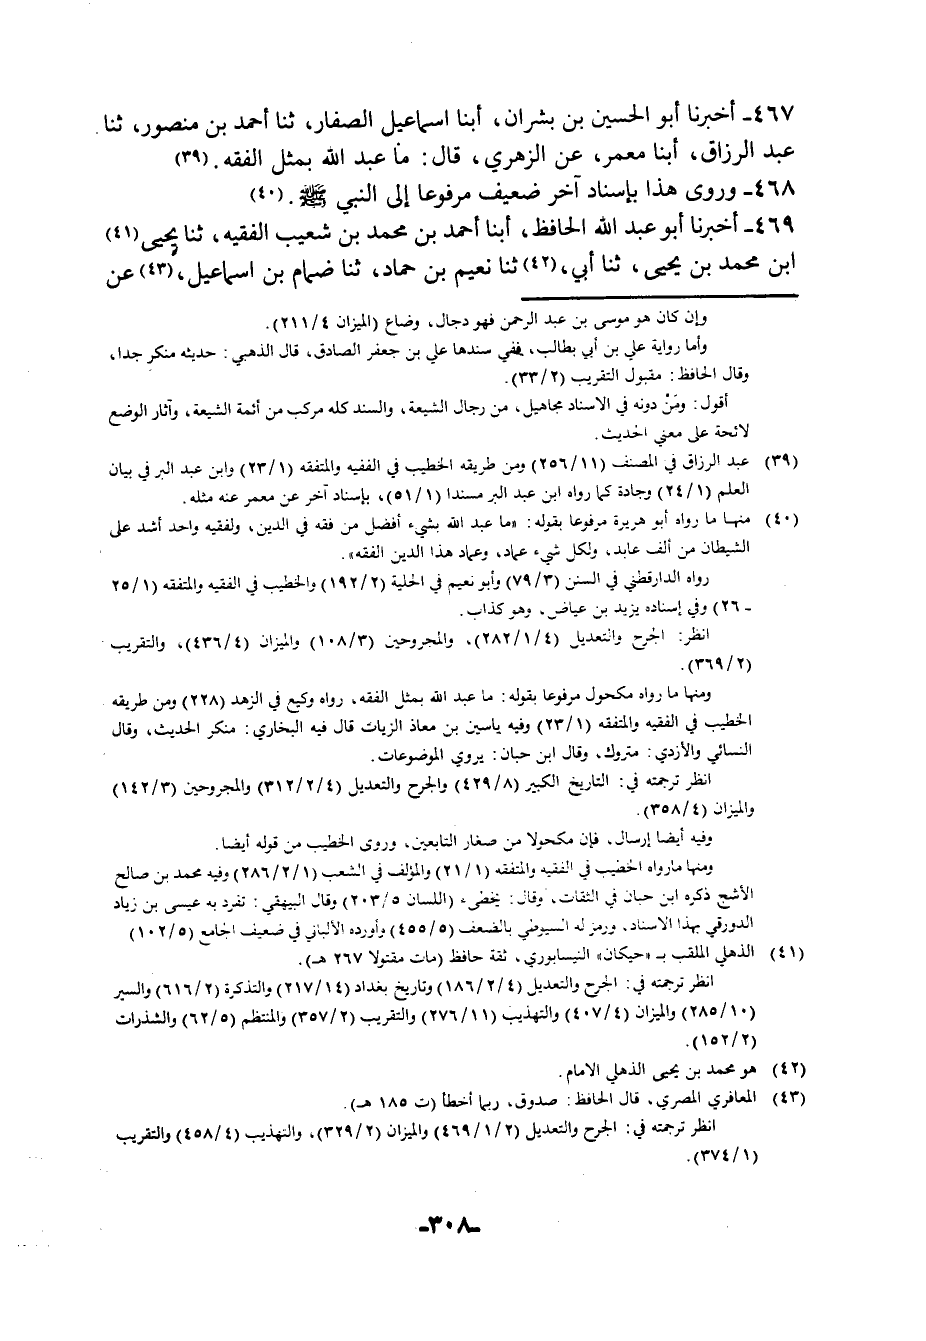 ٤٦٧ـ أخبرنا أبو الحسين بن بشران، أبنا اسماعيل الصفار، ثنا أحمد بن منصور، ثنا
عبد الرزاق، أبنا معمر، عن الزهري، قال: ما عبد الله بمثل الفقه. (٣٩)
٤٦٨ـ وروى هذا بإسناد آخر ضعيف مرفوعا إلى النبي ﷺ. (٤٠)
٤٦٩ـ أخبرنا أبو عبد الله الحافظ، أبنا أحمد بن محمد بن شعيب الفقيه، ثنا يحيى (٤١)
ابن محمد بن يحيى، ثنا أبي، (٤٢) ثنا نعيم بن حماد، ثنا ضمام بن اسماعيل، (٤٣) عن
وإن كان هو موسى بن عبد الرحمن فهو دجال، وضاع (الميزان ٢١١/٤).
وأما رواية علي بن أبي بطالب، ففي سندها علي بن جعفر الصادق، قال الذهبي: حديثه منكر جدا،
وقال الحافظ: مقبول التقريب (٣٣/٢).
أقول: ومَنْ دونه في الاسناد مجاهيل، من رجال الشيعة، والسند كله مركب من أئمة الشيعة، وآثار الوضع
لائحة على معنى الحديث.
(٣٩) عبد الرزاق في المصنف (٢٥٦/١١) ومن طريقه الخطيب في الفقيه والمتفقه (٢٣/١) وابن عبد البر في بيان
العلم (٢٤/١) وجادة كما رواه ابن عبد البر مسندا (٥١/١)، بإسناد آخر عن معمر عنه مثله.
(٤٠) منها ما رواه أبو هريرة مرفوعا بقوله: «ما عبد الله بشيء أفضل من فقه في الدين، ولفقيه واحد أشد على
الشيطان من ألف عابد، ولكل شيء عماد، وعماد هذا الدين الفقه».
رواه الدارقطني في السنن (٧٩/٣) وأبو نعيم في الحلية (١٩٢/٢) والخطيب في الفقيه والمتفقه (٢٥/١
ـ ٢٦) وفي إسناده يزيد بن عياض، وهو كذاب.
انظر: الجرح والتعديل (٢٨٢/١/٤)، والمجروحين (١٠٨/٣) والميزان (٤٣٦/٤)، والتقريب
(٣٦٩/٢).
ومنها ما رواه مكحول مرفوعا بقوله: ما عبد الله بمثل الفقه، رواه وكيع في الزهد (٢٢٨) ومن طريقه
الخطيب في الفقيه والمتفقه (٢٣/١) وفيه ياسين بن معاذ الزيات قال فيه البخاري: منكر الحديث، وقال
النسائي والأزدي: متروك، وقال ابن حبان: يروي الموضوعات.
انظر ترجمته في: التاريخ الكبير (٤٢٩/٨) والجرح والتعديل (٣١٢/٢/٤) والمجروحين (١٤٢/٣)
والميزان (٣٥٨/٤).
وفيه أيضا إرسال، فإن مكحولا من صغار التابعين، وروى الخطيب من قوله أيضا.
ومنها مارواه الخطيب في الفقيه والمتفقه (٢١/١) والمؤلف في الشعب (٢٨٦/٢/١) وفيه محمد بن صالح
الأشج ذكره ابن حبان في الثقات، وقال: يخطىء (اللسان ٢٠٣/٥) وقال البيهقي: تفرد به عيسى بن زياد
الدورقي بهذا الاسناد، ورمز له السيوطي بالضعف (٤٥٥/٥) وأورده الألباني في ضعيف الجامع (١٠٢/٥)
(٤١) الذهلي الملقب بـ «حيكان» النيسابوري، ثقة حافظ (مات مقتولا ٢٦٧ هـ).
انظر ترجمته في: الجرح والتعديل (١٨٦/٢/٤) وتاريخ بغداد (٢١٧/١٤) والتذكرة (٦١٦/٢) والسير
(٢٨٥/١٠) والميزان (٤٠٧/٤) والتهذيب (٢٧٦/١١) والتقريب (٣٥٧/٢) والمنتظم (٦٢/٥) والشذرات
(١٥٢/٢).
(٤٢) هو محمد بن يحيى الذهلي الامام.
(٤٣) المعافري المصري، قال الحافظ: صدوق، ربما أخطأ (ت ١٨٥ هـ).
انظر ترجمته في: الجرح والتعديل (٤٦٩/١/٢) والميزان (٣٢٩/٢)، والتهذيب (٤٥٨/٤) والتقريب
(٣٧٤/١).
ـ٣٠٨ـ